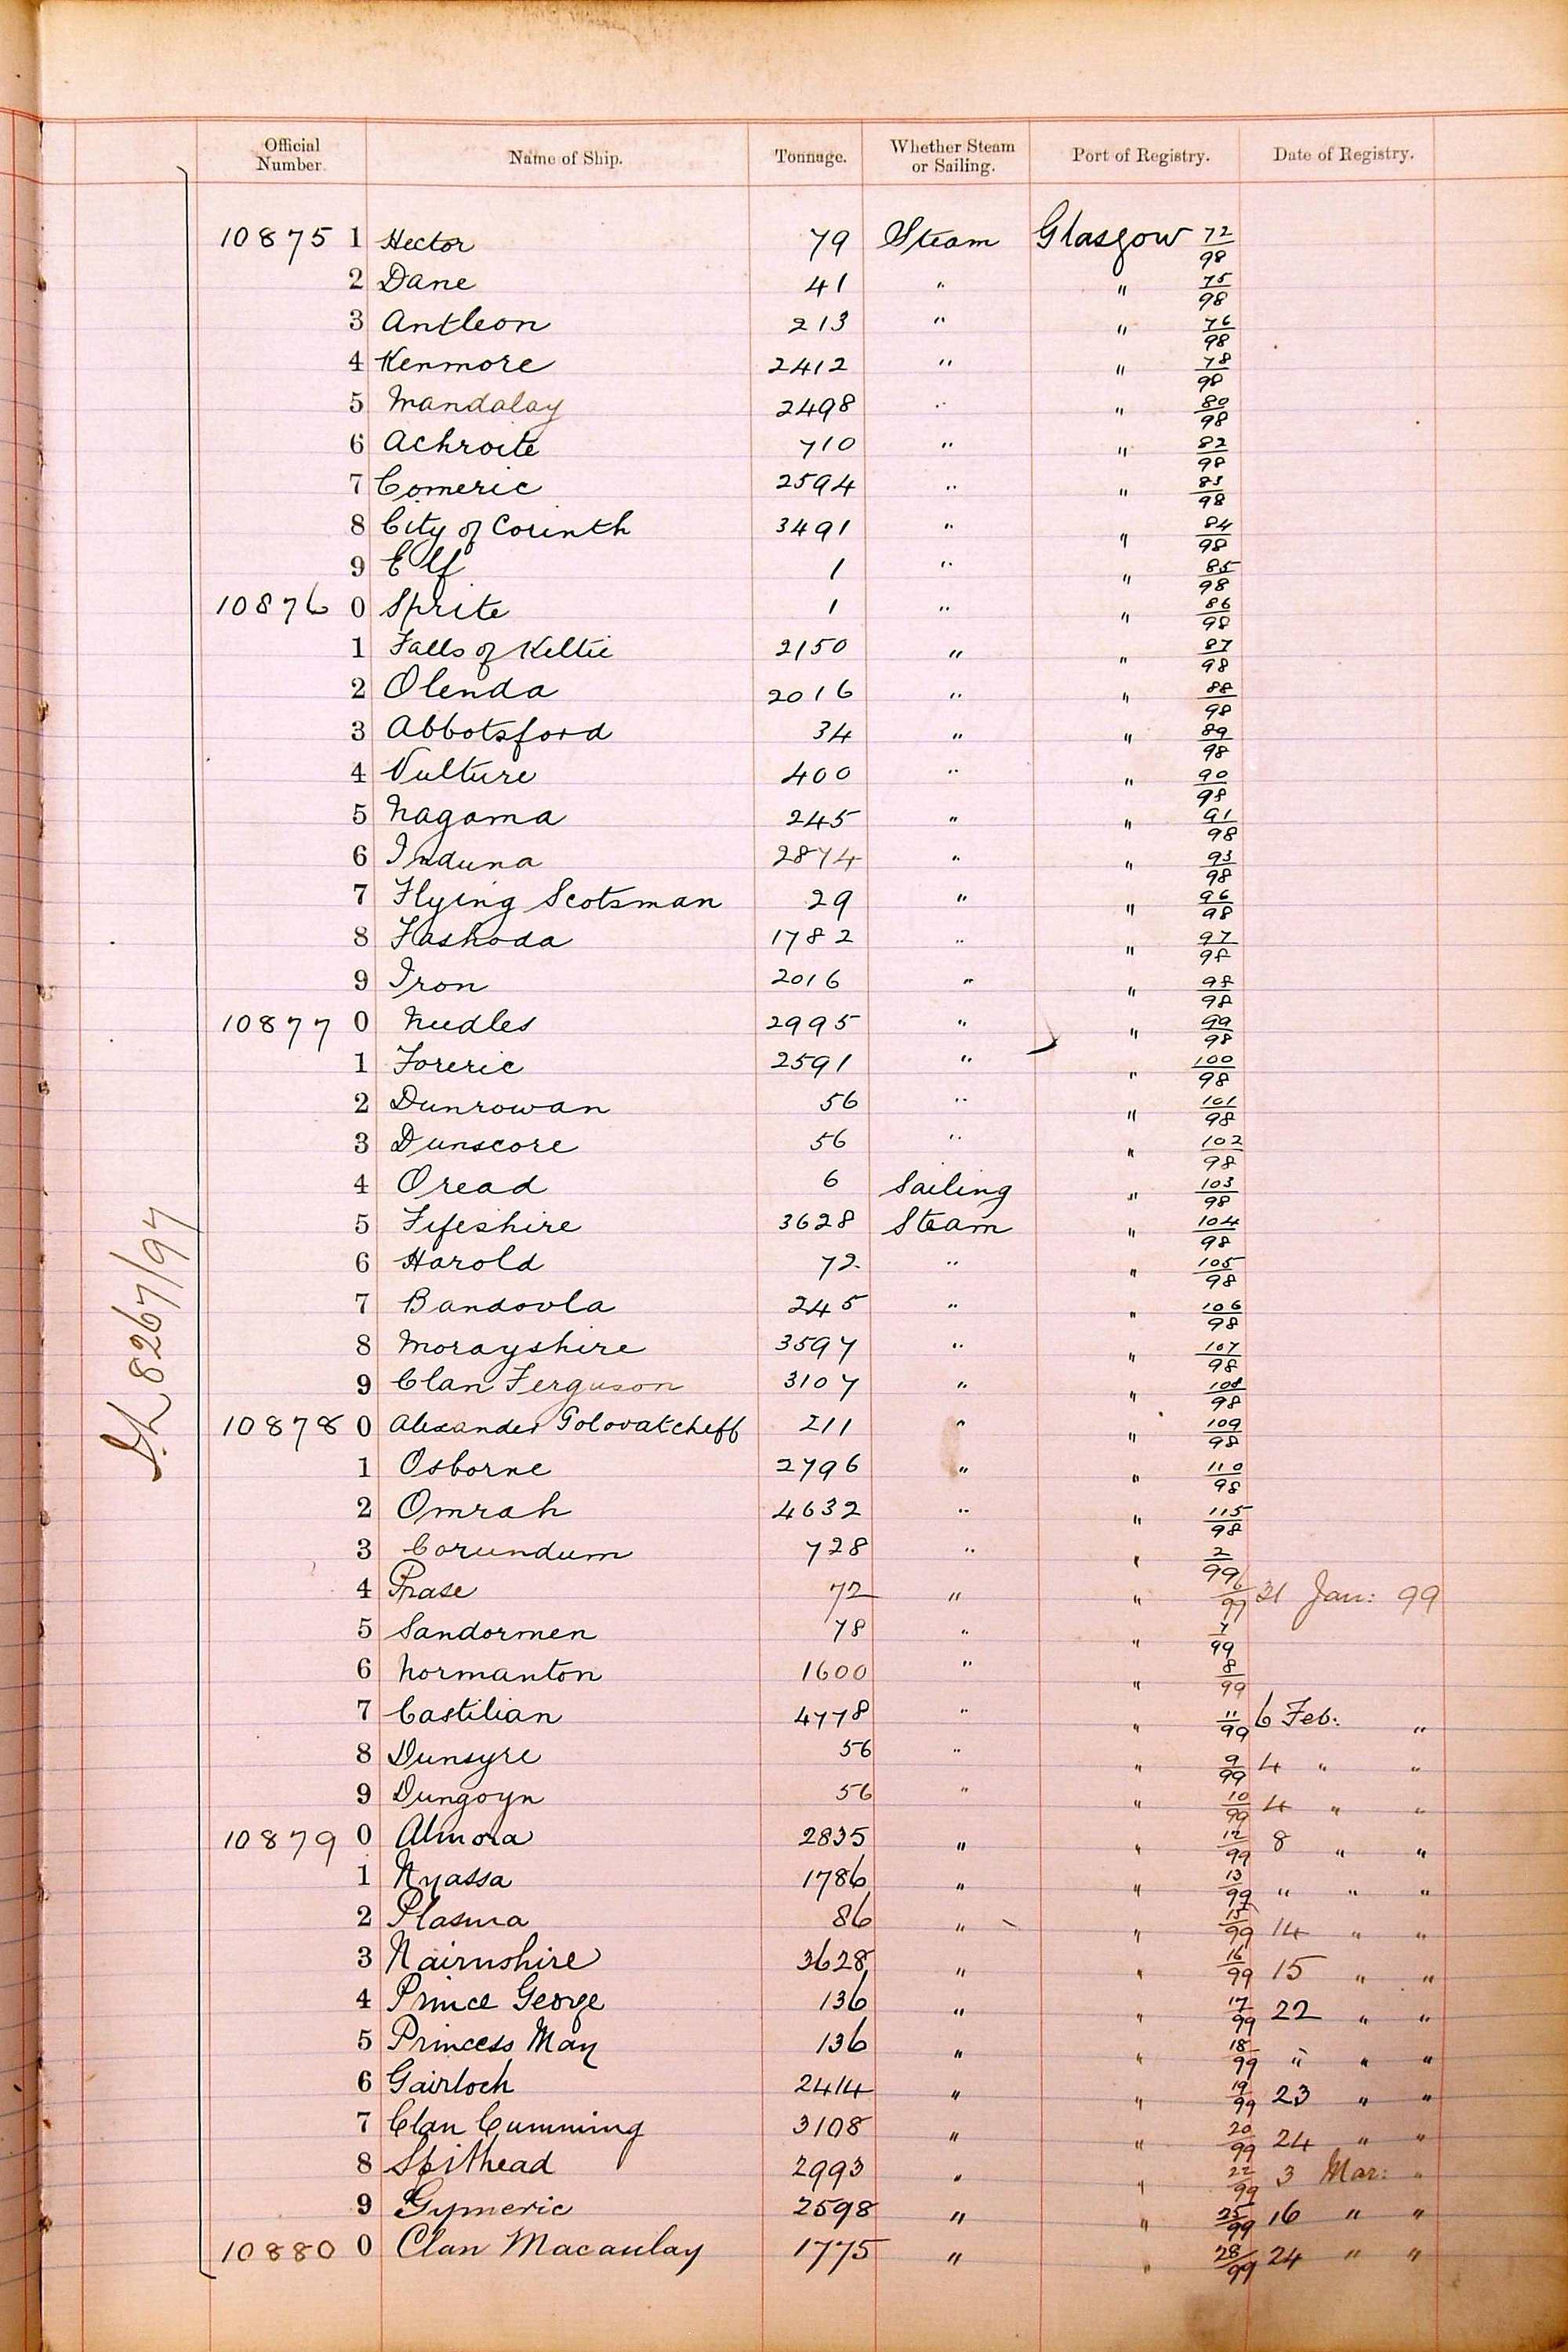 Official Number. Name of Ship. Tonnage. Whether Steam or Sailing. Port of Registry. Date of Registry.
10875 1 Hector 79 Steam Glasgow 72/98
2 Dane 41 " " 75/98
3 Antleon 213 " " 76/98
4 Kenmore 2412 " " 78/98
5 Mandalay 2498 " " 80/98
6 Achroite 710 " " 82/98
7 Comeric 2594 " " 83/98
8 City of Corinth 3491 " " 84/98
9 Elf 1 " " 85/98
10876 0 Sprite 1 " " 86/98
1 Falls of Keltie 2150 " " 87/98
2 Olenda 2016 " " 88/98
3 Abbotsford 34 " " 89/98
4 Vulture 400 " " 90/98
5 Nagama 245 " " 91/98
6 Induna 2874 " " 93/98
7 Flying Scotsman 29 " " 96/98
8 Fashoda 1782 " " 97/98
9 Iron 2016 " " 98/98
10877 0 Needles 2995 " " 99/98
1 Foreric 2591 " " 100/98
2 Dunrowan 56 " " 101/98
3 Dunscore 56 " " 102/98
4 Oread 6 Sailing " 103/98
5 Fifeshire 3628 Steam " 104/98
6 Harold 72 " " 105/98
7 Bandoola 245 " " 106/98
8 Morayshire 3597 " " 107/98
9 Clan Ferguson 3107 " " 108/98
10878 0 Alexander Golovatcheff 211 " " 109/98
1 Osborne 2796 " " 110/98
2 Omrah 4632 " " 115/98
3 Corundum 728 " " 2/99
4 Prase 72 " " 6/99 31 Jan: 99
5 Sandormen 78 " " 7/99
6 Normanton 1600 " " 8/99
7 Castilian 4778 " " 11/99 6 Feb: "
8 Dunsyre 56 " " 9/99 4 " "
9 Dungoyn 56 " " 10/99 4 " "
10879 0 Almora 2835 " " 12/99 8 " "
1 Nyassa 1786 " " 13/99 " " "
2 Plasma 86 " " 15/99 14 " "
3 Nairnshire 3628 " " 16/99 15 " "
4 Prince George 136 " " 17/99 22 " "
5 Princess May 136 " " 18/99 " " "
6 Gairloch 2414 " " 19/99 23 " "
7 Clan Cumming 3108 " " 20/99 24 " "
8 Spithead 2993 " " 22/99 3 Mar: "
9 Gymeric 2598 " " 25/99 16 " "
10880 0 Clan Macaulay 1775 " " 28/99 24 " "
8267/97